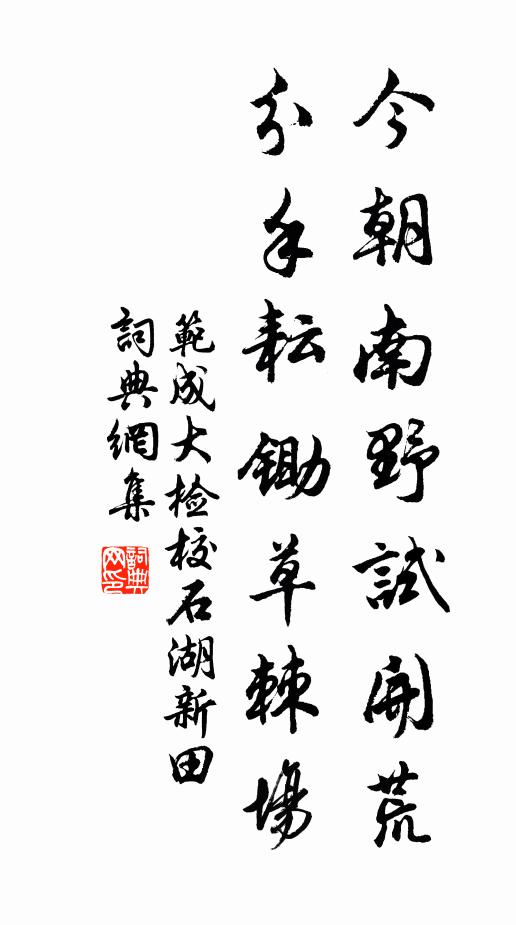 今朝南野試開荒
分手耘鋤草棘場
範成大检校石湖新田
詞典網集
詞典
网印